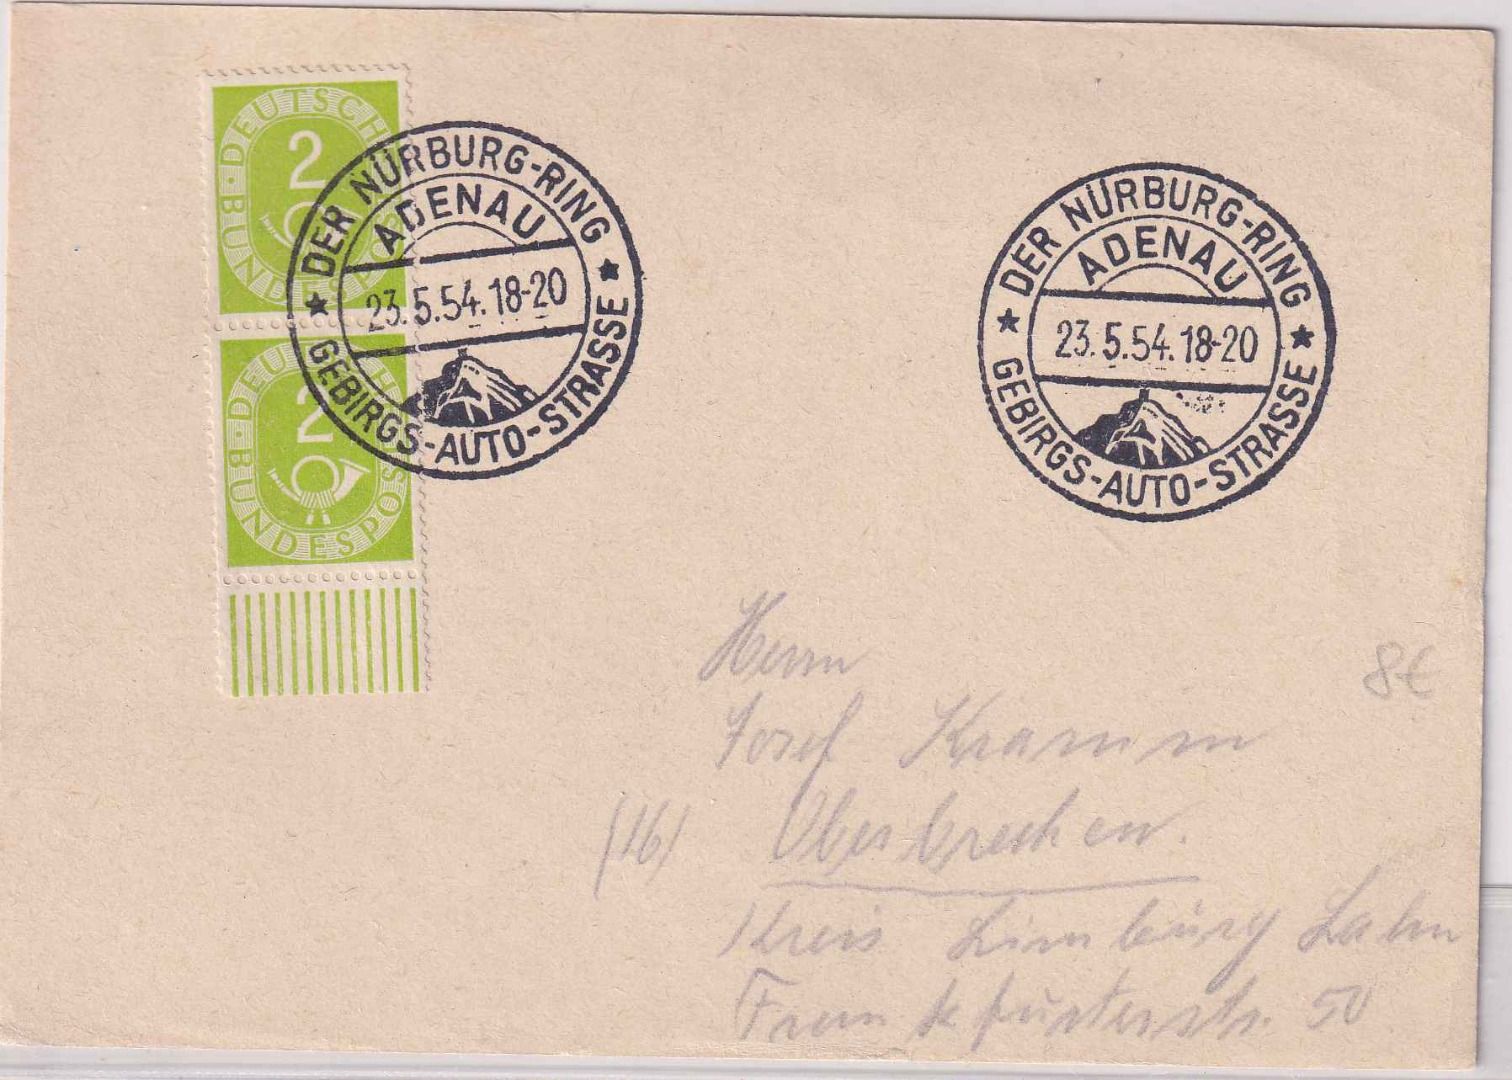 DEUTSCHE
BUNDESPOST
2
DEUTSCHE
BUNDESPOST
2
DER NÜRBURG-RING
ADENAU
23.5.54.18-20
GEBIRGS-AUTO-STRASSE
DER NÜRBURG-RING
ADENAU
23.5.54.18-20
GEBIRGS-AUTO-STRASSE
Herrn
8€
Josef Kramm
(16) Oberbrechen.
Kreis Limburg Lahn
Frankfurterstr. 50